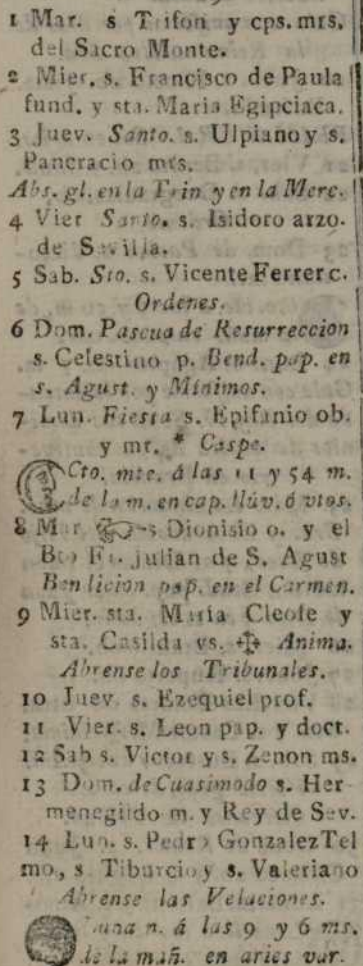 1 Mar. s Trifon y cps. mrs.
del Sacro Monte.
2 Mier. s. Francisco de Paula
fund. y sta. Maria Egipciaca.
3 Juev. Santo. s. Ulpiano y s.
Pancracio mrs.
Abs. gl. en la Trin y en la Merc.
4 Vier Santo. s. Isidoro arzo.
de Sevilla.
5 Sab. Sto. s. Vicente Ferrer c.
Ordenes.
6 Dom. Pascua de Resurreccion
s. Celestino p. Bend. pap. en
s. Agust. y Minimos.
7 Lun. Fiesta s. Epifanio ob.
y mr. * Caspe.
Cto. mte. á las 11 y 54 m.
de la m. en cap. llúv. ó vtos.
8 Mar ☞ s Dionisio o. y el
Bto Fr. Julian de S. Agust
Bendicion pap. en el Carmen.
9 Mier. sta. Maria Cleofe y
sta. Casilda vs. ✠ Anima.
Abrense los Tribunales.
10 Juev. s. Ezequiel prof.
11 Vier. s. Leon pap. y doct.
12 Sab s. Victor y s. Zenon ms.
13 Dom. de Cuasimodo s. Her
menegildo m. y Rey de Sev.
14 Lun. s. Pedro Gonzalez Tel
mo, s Tiburcio y s. Valeriano
Abrense las Velaciones.
Luna n. á las 9 y 6 ms.
de la mañ. en aries var.